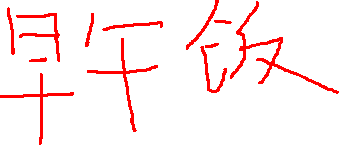 早午饭